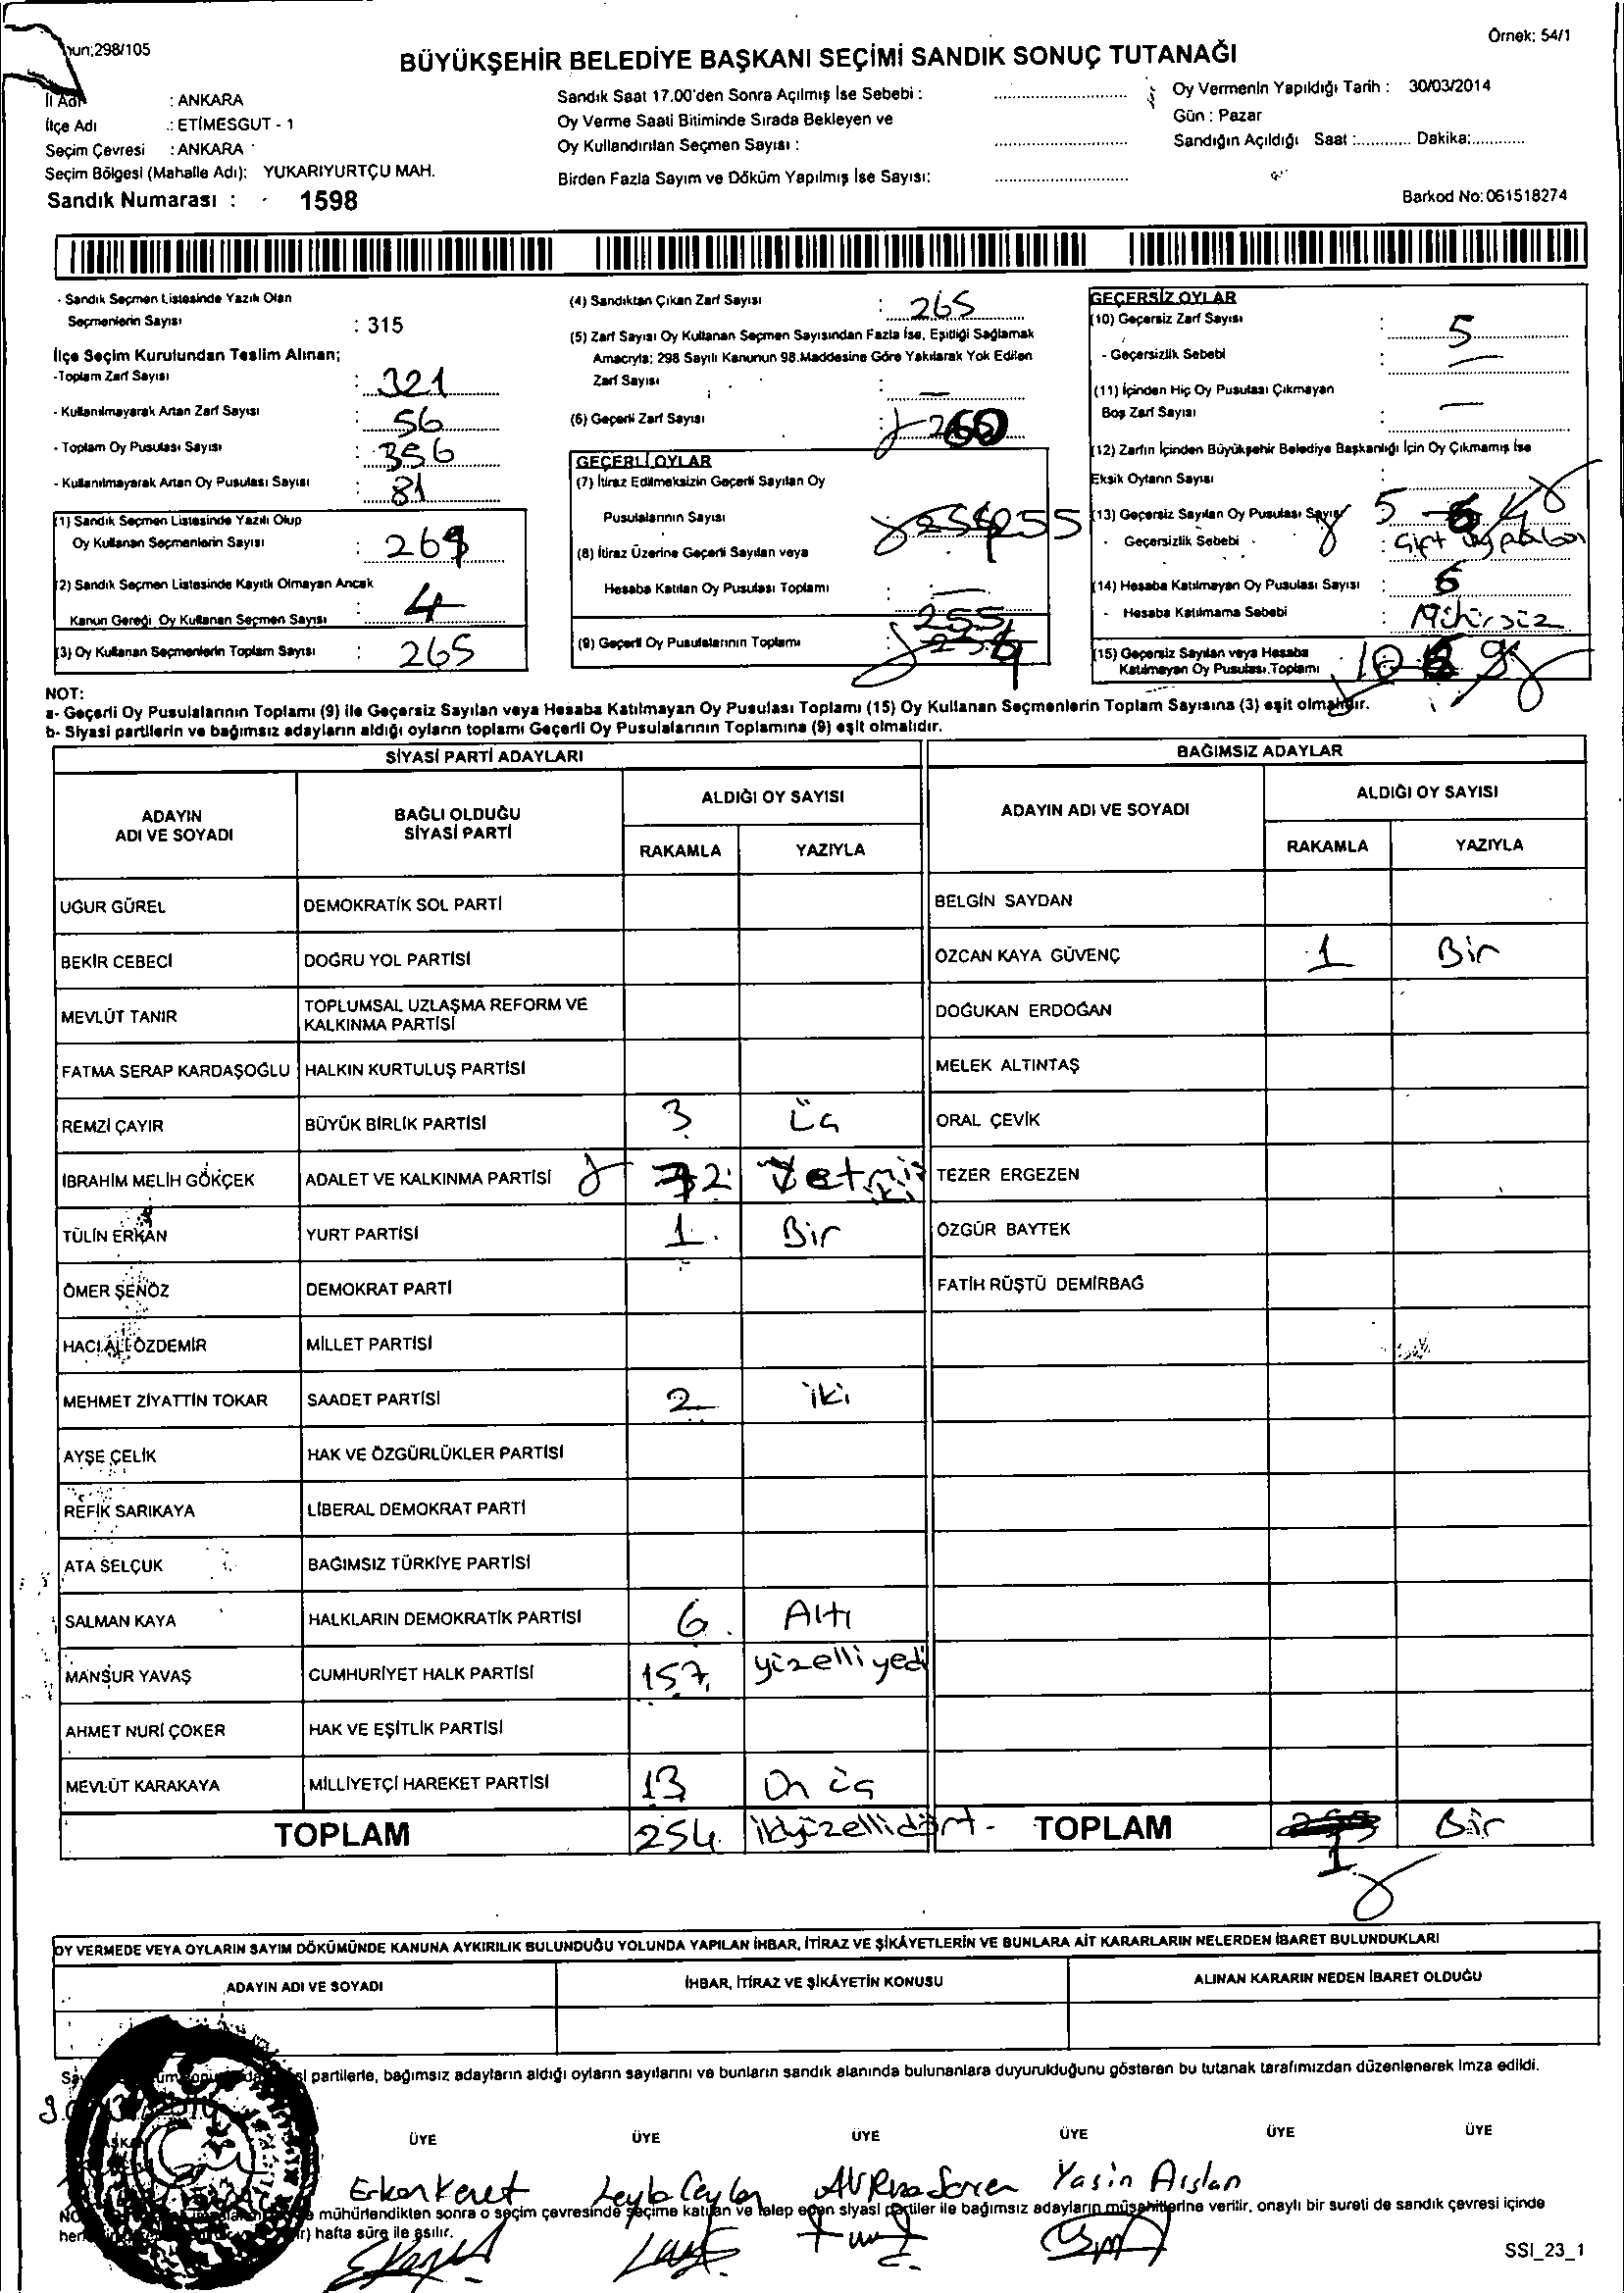 298/105
Örnek: 54/1
BÜYÜKŞEHİR BELEDİYE BAŞKANI SEÇİMİ SANDIK SONUÇ TUTANAĞI
İl Adı : ANKARA
İlçe Adı : ETİMESGUT - 1
Seçim Çevresi : ANKARA
Seçim Bölgesi (Mahalle Adı): YUKARIYURTÇU MAH.
Sandık Numarası : 1598
Sandık Saat 17.00'den Sonra Açılmış İse Sebebi :
Oy Verme Saati Bitiminde Sırada Bekleyen ve
Oy Kullandırılan Seçmen Sayısı :
Birden Fazla Sayım ve Döküm Yapılmış İse Sayısı:
Oy Vermenin Yapıldığı Tarih : 30/03/2014
Gün : Pazar
Sandığın Açıldığı Saat :............ Dakika:............
Barkod No: 061518274
- Sandık Seçmen Listesinde Yazılı Olan
Seçmenlerin Sayısı : 315
İlçe Seçim Kurulundan Teslim Alınan;
-Toplam Zarf Sayısı : 321
- Kullanılmayarak Artan Zarf Sayısı : 56
- Toplam Oy Pusulası Sayısı : 356
- Kullanılmayarak Artan Oy Pusulası Sayısı : 81
(1) Sandık Seçmen Listesinde Yazılı Olup
Oy Kullanan Seçmenlerin Sayısı :
(2) Sandık Seçmen Listesinde Kayıtlı Olmayan Ancak
Kanun Gereği Oy Kullanan Seçmen Sayısı : 4
(3) Oy Kullanan Seçmenlerin Toplam Sayısı : 265
(4) Sandıktan Çıkan Zarf Sayısı : 265
(5) Zarf Sayısı Oy Kullanan Seçmen Sayısından Fazla İse, Eşitliği Sağlamak
Amacıyla; 298 Sayılı Kanunun 98.Maddesine Göre Yakılarak Yok Edilen
Zarf Sayısı : —
(6) Geçerli Zarf Sayısı : 260
GEÇERLİ OYLAR
(7) İtiraz Edilmeksizin Geçerli Sayılan Oy
Pusulalarının Sayısı : 255
(8) İtiraz Üzerine Geçerli Sayılan veya
Hesaba Katılan Oy Pusulası Toplamı : —
(9) Geçerli Oy Pusulalarının Toplamı : 255
GEÇERSİZ OYLAR
(10) Geçersiz Zarf Sayısı : 5
- Geçersizlik Sebebi : —
(11) İçinden Hiç Oy Pusulası Çıkmayan
Boş Zarf Sayısı : —
(12) Zarfın İçinden Büyükşehir Belediye Başkanlığı İçin Oy Çıkmamış İse
Eksik Oyların Sayısı :
(13) Geçersiz Sayılan Oy Pusulası Sayısı 5
- Geçersizlik Sebebi : Çift
(14) Hesaba Katılmayan Oy Pusulası Sayısı :
- Hesaba Katılmama Sebebi : Mühürsüz
(15) Geçersiz Sayılan veya Hesaba
Katılmayan Oy Pusulası Toplamı : 10
NOT:
a- Geçerli Oy Pusulalarının Toplamı (9) ile Geçersiz Sayılan veya Hesaba Katılmayan Oy Pusulası Toplamı (15) Oy Kullanan Seçmenlerin Toplam Sayısına (3) eşit olmalıdır.
b- Siyasi partilerin ve bağımsız adayların aldığı oyların toplamı Geçerli Oy Pusulalarının Toplamına (9) eşit olmalıdır.
SİYASİ PARTİ ADAYLARI
BAĞIMSIZ ADAYLAR
ADAYIN ADI VE SOYADI
BAĞLI OLDUĞU SİYASİ PARTİ
ALDIĞI OY SAYISI
RAKAMLA YAZIYLA
ADAYIN ADI VE SOYADI
ALDIĞI OY SAYISI
RAKAMLA YAZIYLA
UĞUR GÜREL DEMOKRATİK SOL PARTİ BELGİN SAYDAN
BEKİR CEBECİ DOĞRU YOL PARTİSİ ÖZCAN KAYA GÜVENÇ 1 Bir
MEVLÜT TANIR TOPLUMSAL UZLAŞMA REFORM VE KALKINMA PARTİSİ DOĞUKAN ERDOĞAN
FATMA SERAP KARDAŞOĞLU HALKIN KURTULUŞ PARTİSİ MELEK ALTINTAŞ
REMZİ ÇAYIR BÜYÜK BİRLİK PARTİSİ 3 Üç ORAL ÇEVİK
İBRAHİM MELİH GÖKÇEK ADALET VE KALKINMA PARTİSİ 72 Yetmiş iki TEZER ERGEZEN
TÜLİN ERKAN YURT PARTİSİ 1 Bir ÖZGÜR BAYTEK
ÖMER ŞENÖZ DEMOKRAT PARTİ FATİH RÜŞTÜ DEMİRBAĞ
HACI ALİ ÖZDEMİR MİLLET PARTİSİ
MEHMET ZİYATTİN TOKAR SAADET PARTİSİ 2 iki
AYŞE ÇELİK HAK VE ÖZGÜRLÜKLER PARTİSİ
REFİK SARIKAYA LİBERAL DEMOKRAT PARTİ
ATA SELÇUK BAĞIMSIZ TÜRKİYE PARTİSİ
SALMAN KAYA HALKLARIN DEMOKRATİK PARTİSİ 6 Altı
MANSUR YAVAŞ CUMHURİYET HALK PARTİSİ 157 yüzelli yedi
AHMET NURİ ÇOKER HAK VE EŞİTLİK PARTİSİ
MEVLÜT KARAKAYA MİLLİYETÇİ HAREKET PARTİSİ 13 On üç
TOPLAM 254 ikiyüzellidört - TOPLAM 1 Bir
OY VERMEDE VEYA OYLARIN SAYIM DÖKÜMÜNDE KANUNA AYKIRILIK BULUNDUĞU YOLUNDA YAPILAN İHBAR, İTİRAZ VE ŞİKÂYETLERİN VE BUNLARA AİT KARARLARIN NELERDEN İBARET BULUNDUKLARI
ADAYIN ADI VE SOYADI İHBAR, İTİRAZ VE ŞİKÂYETİN KONUSU ALINAN KARARIN NEDEN İBARET OLDUĞU
partilerle, bağımsız adayların aldığı oyların sayılarını ve bunların sandık alanında bulunanlara duyurulduğunu gösteren bu tutanak tarafımızdan düzenlenerek imza edildi.
ÜYE ÜYE ÜYE ÜYE ÜYE ÜYE
Erkan Leyla Ceylan Yasin Arslan
mühürlendikten sonra o seçim çevresinde seçime katılan ve talep eden siyasi partiler ile bağımsız adayların müşahitlerine verilir, onaylı bir sureti de sandık çevresi içinde
hafta süre ile asılır.
SSI_23_1